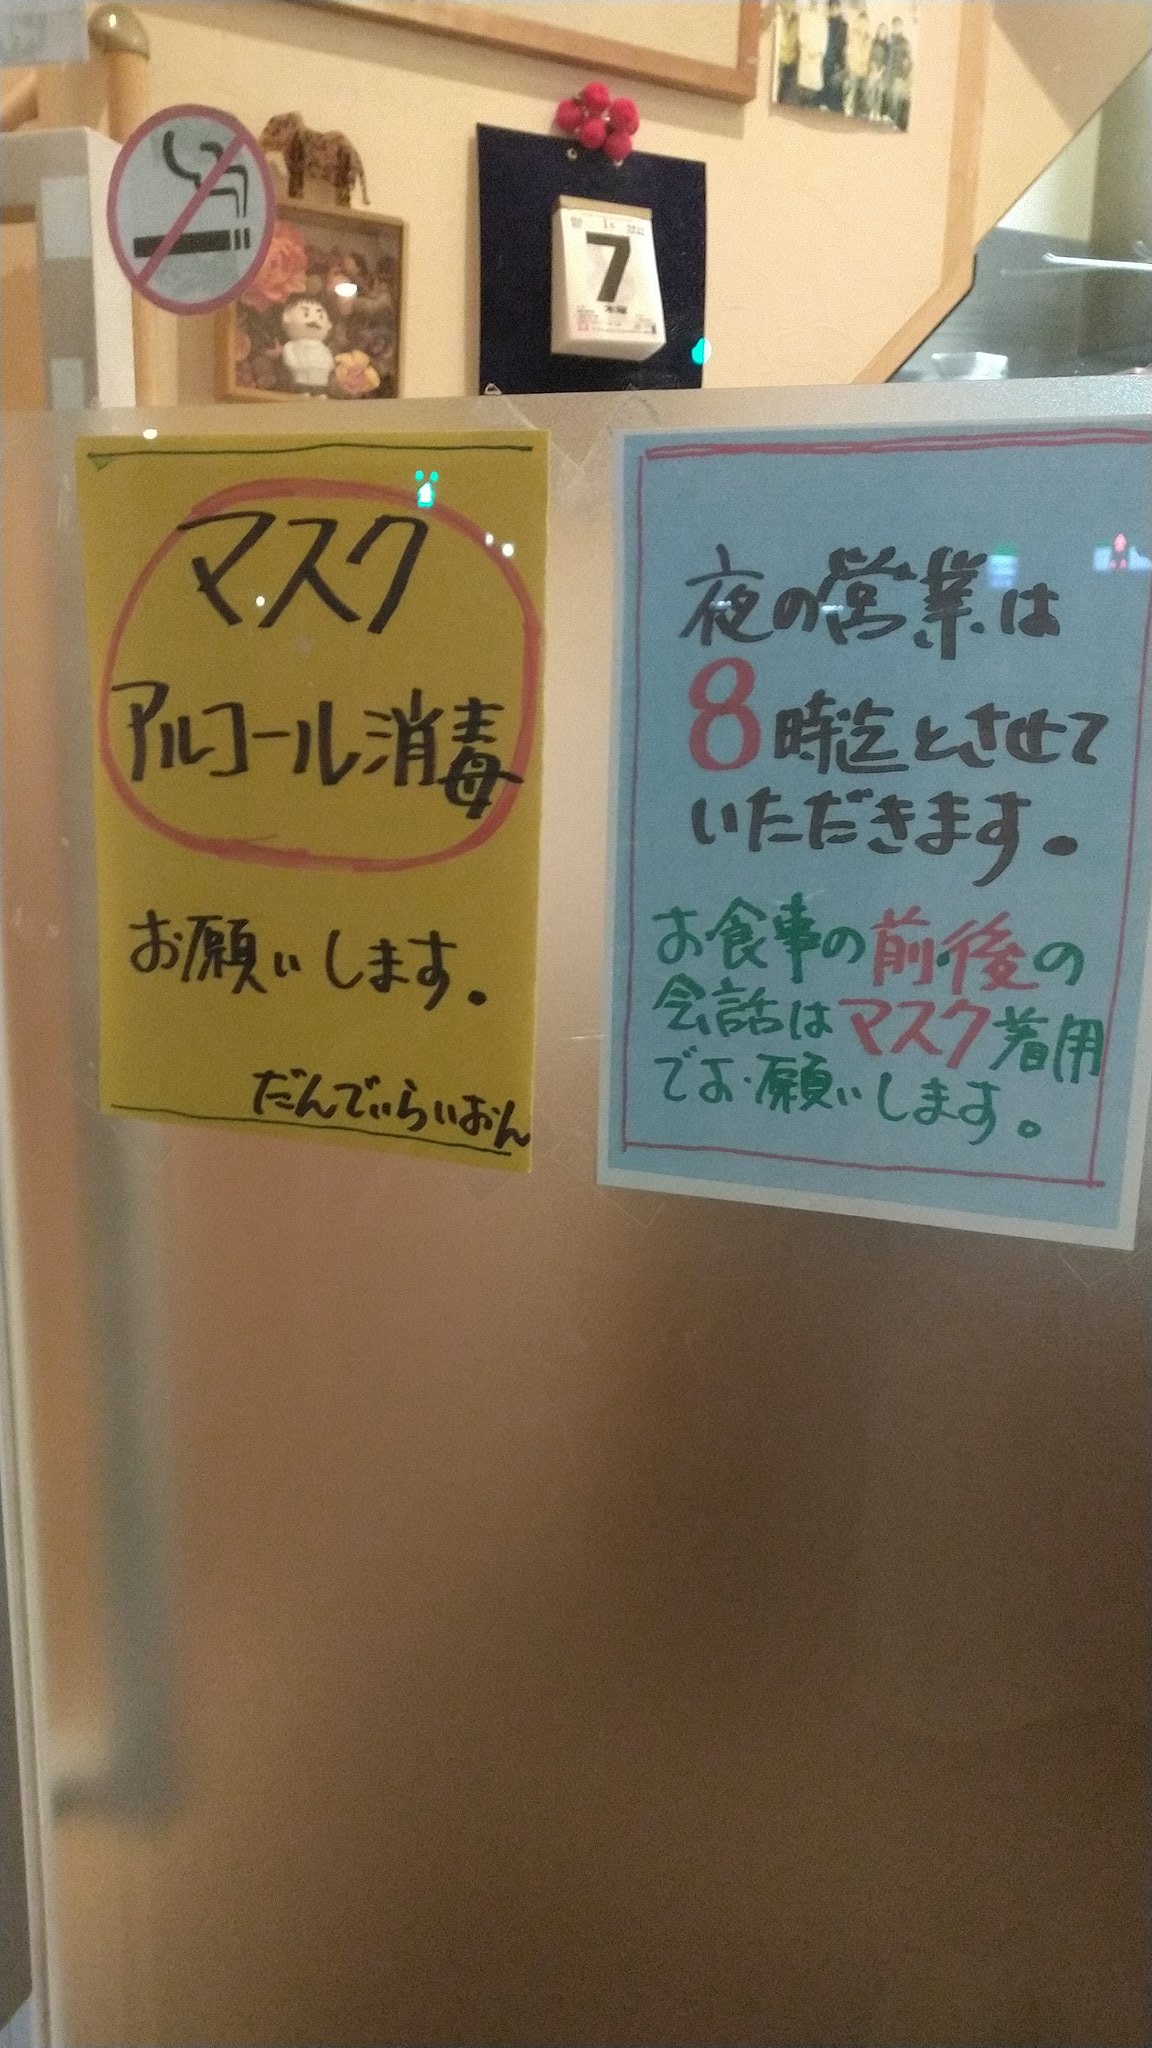 7
マスク
アルコール消毒
お願いします。
だんでぃらいおん
夜の営業は
8時迄とさせて
いただきます。
お食事の前後の
会話はマスク着用
でお願いします。